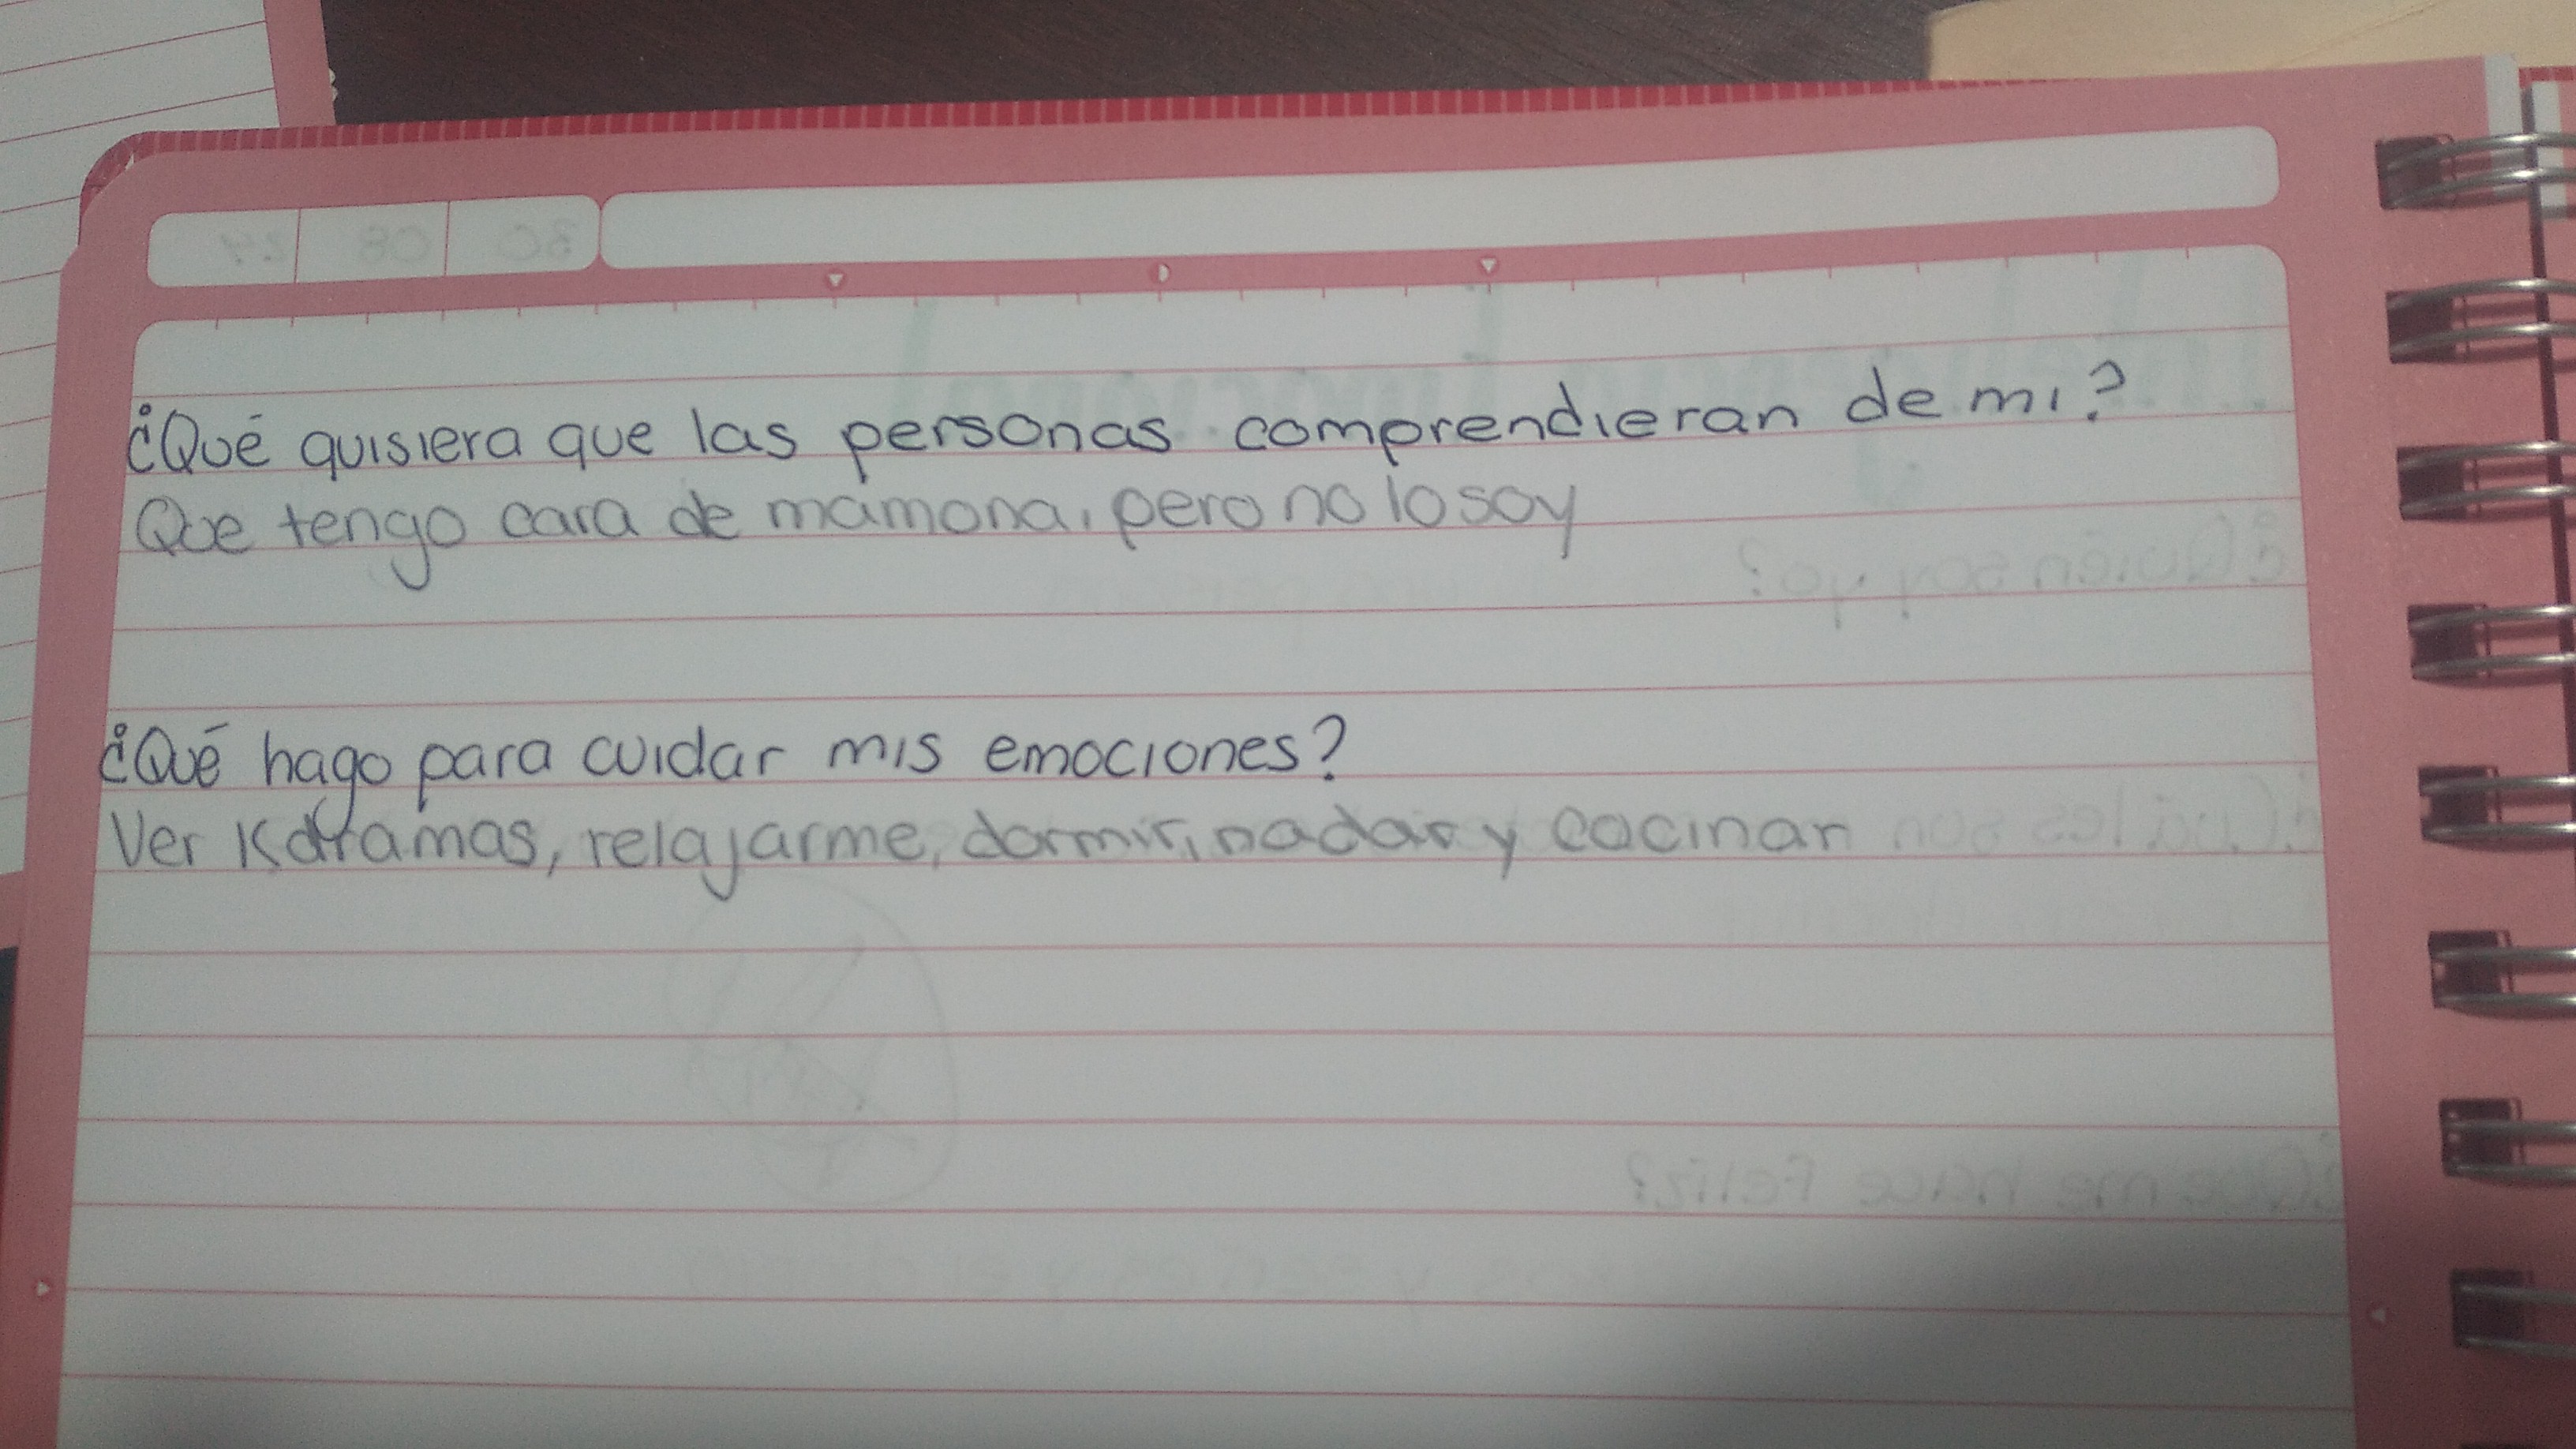 ¿Qué quisiera que las personas comprendieran de mi?
Que tengo cara de mamona, pero no lo soy
¿Qué hago para cuidar mis emociones?
Ver Kdramas, relajarme, dormir, nadar y cocinar